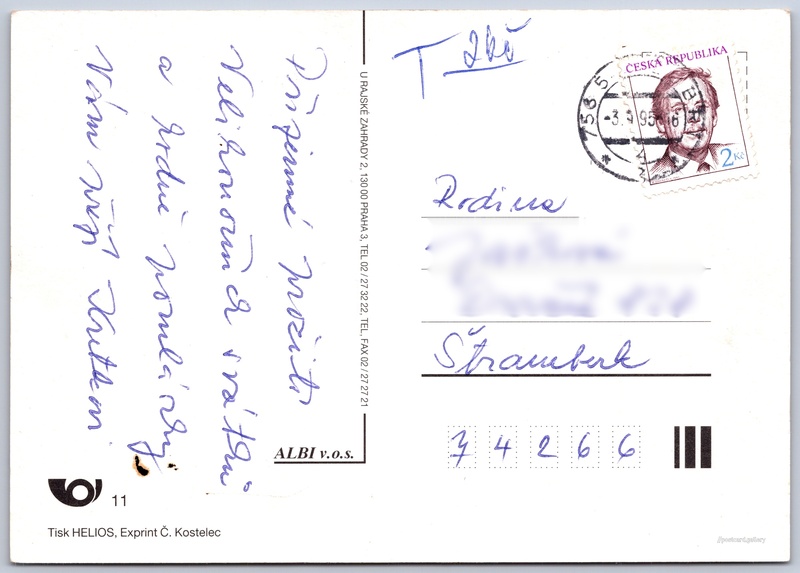 Příjemné prožití
Velikonočních svátků
a hodně pomlázky
Vám přejí
U RAJSKÉ ZAHRADY 2, 130 00 PRAHA 3, TEL. 02 / 27 32 22, TEL. FAX 02 / 27 27 21
ALBI v.o.s.
11
Tisk HELIOS, Exprint Č. Kostelec
T 2kč
ČESKÁ REPUBLIKA
2 Kč
756 5
Rodina
Štramberk
74266